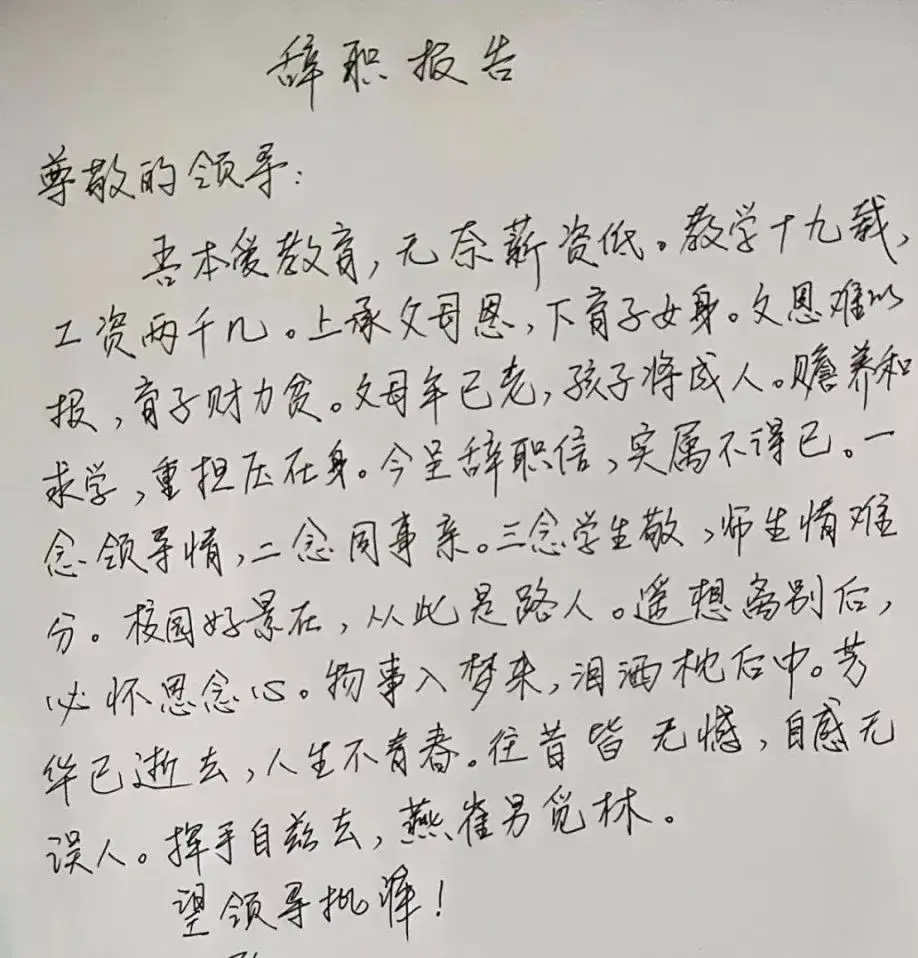 辞职报告
尊敬的领导:
吾本爱教育,无奈薪资低。教学十九载,
工资两千几。上承父母恩,下育子女身。父恩难以
报,育子财力贫。父母年已老,孩子将成人。赡养和
求学,重担压在身。今呈辞职信,实属不得已。一
念领导情,二念同事亲。三念学生敬,师生情难
分。校园好景在,从此是路人。遥想离别后,
必怀思念心。物事入梦来,泪洒枕石中。芳
华已逝去,人生不青春。往昔皆无憾,自感无
误人。挥手自兹去,燕雀另觅林。
望领导批准!